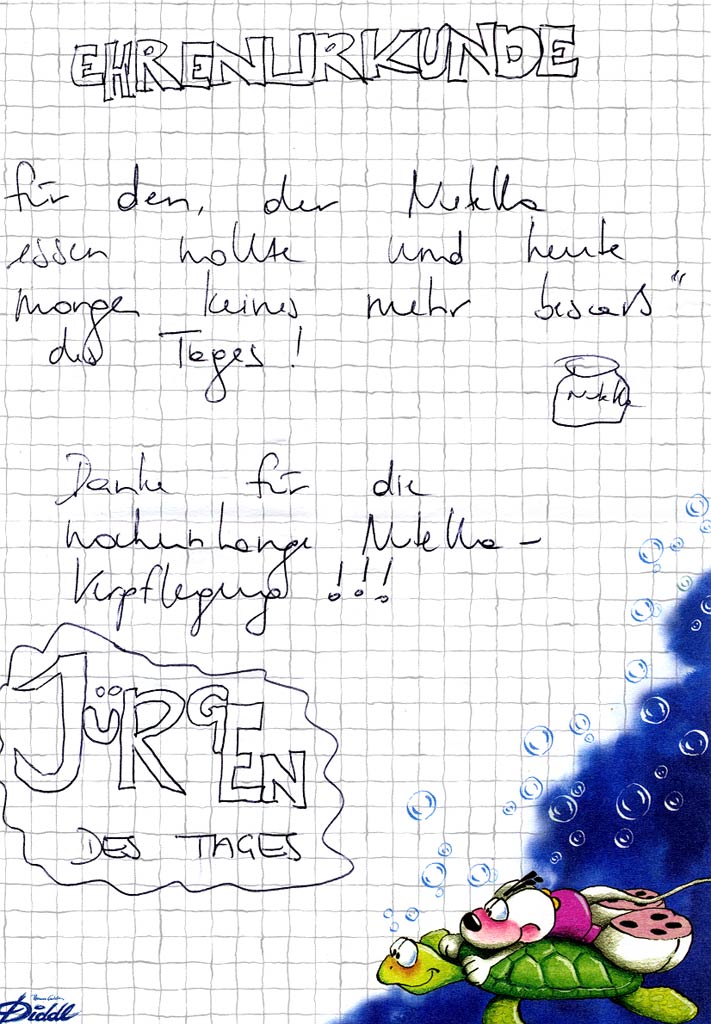 EHRENURKUNDE
für den, der Nutella
essen wollte und heute
morgen keines mehr besaß“
des Tages!
Nutella
Danke für die
wochenlange Nutella-
Verpflegung !!!
JÜRGEN
DES TAGES
Diddl